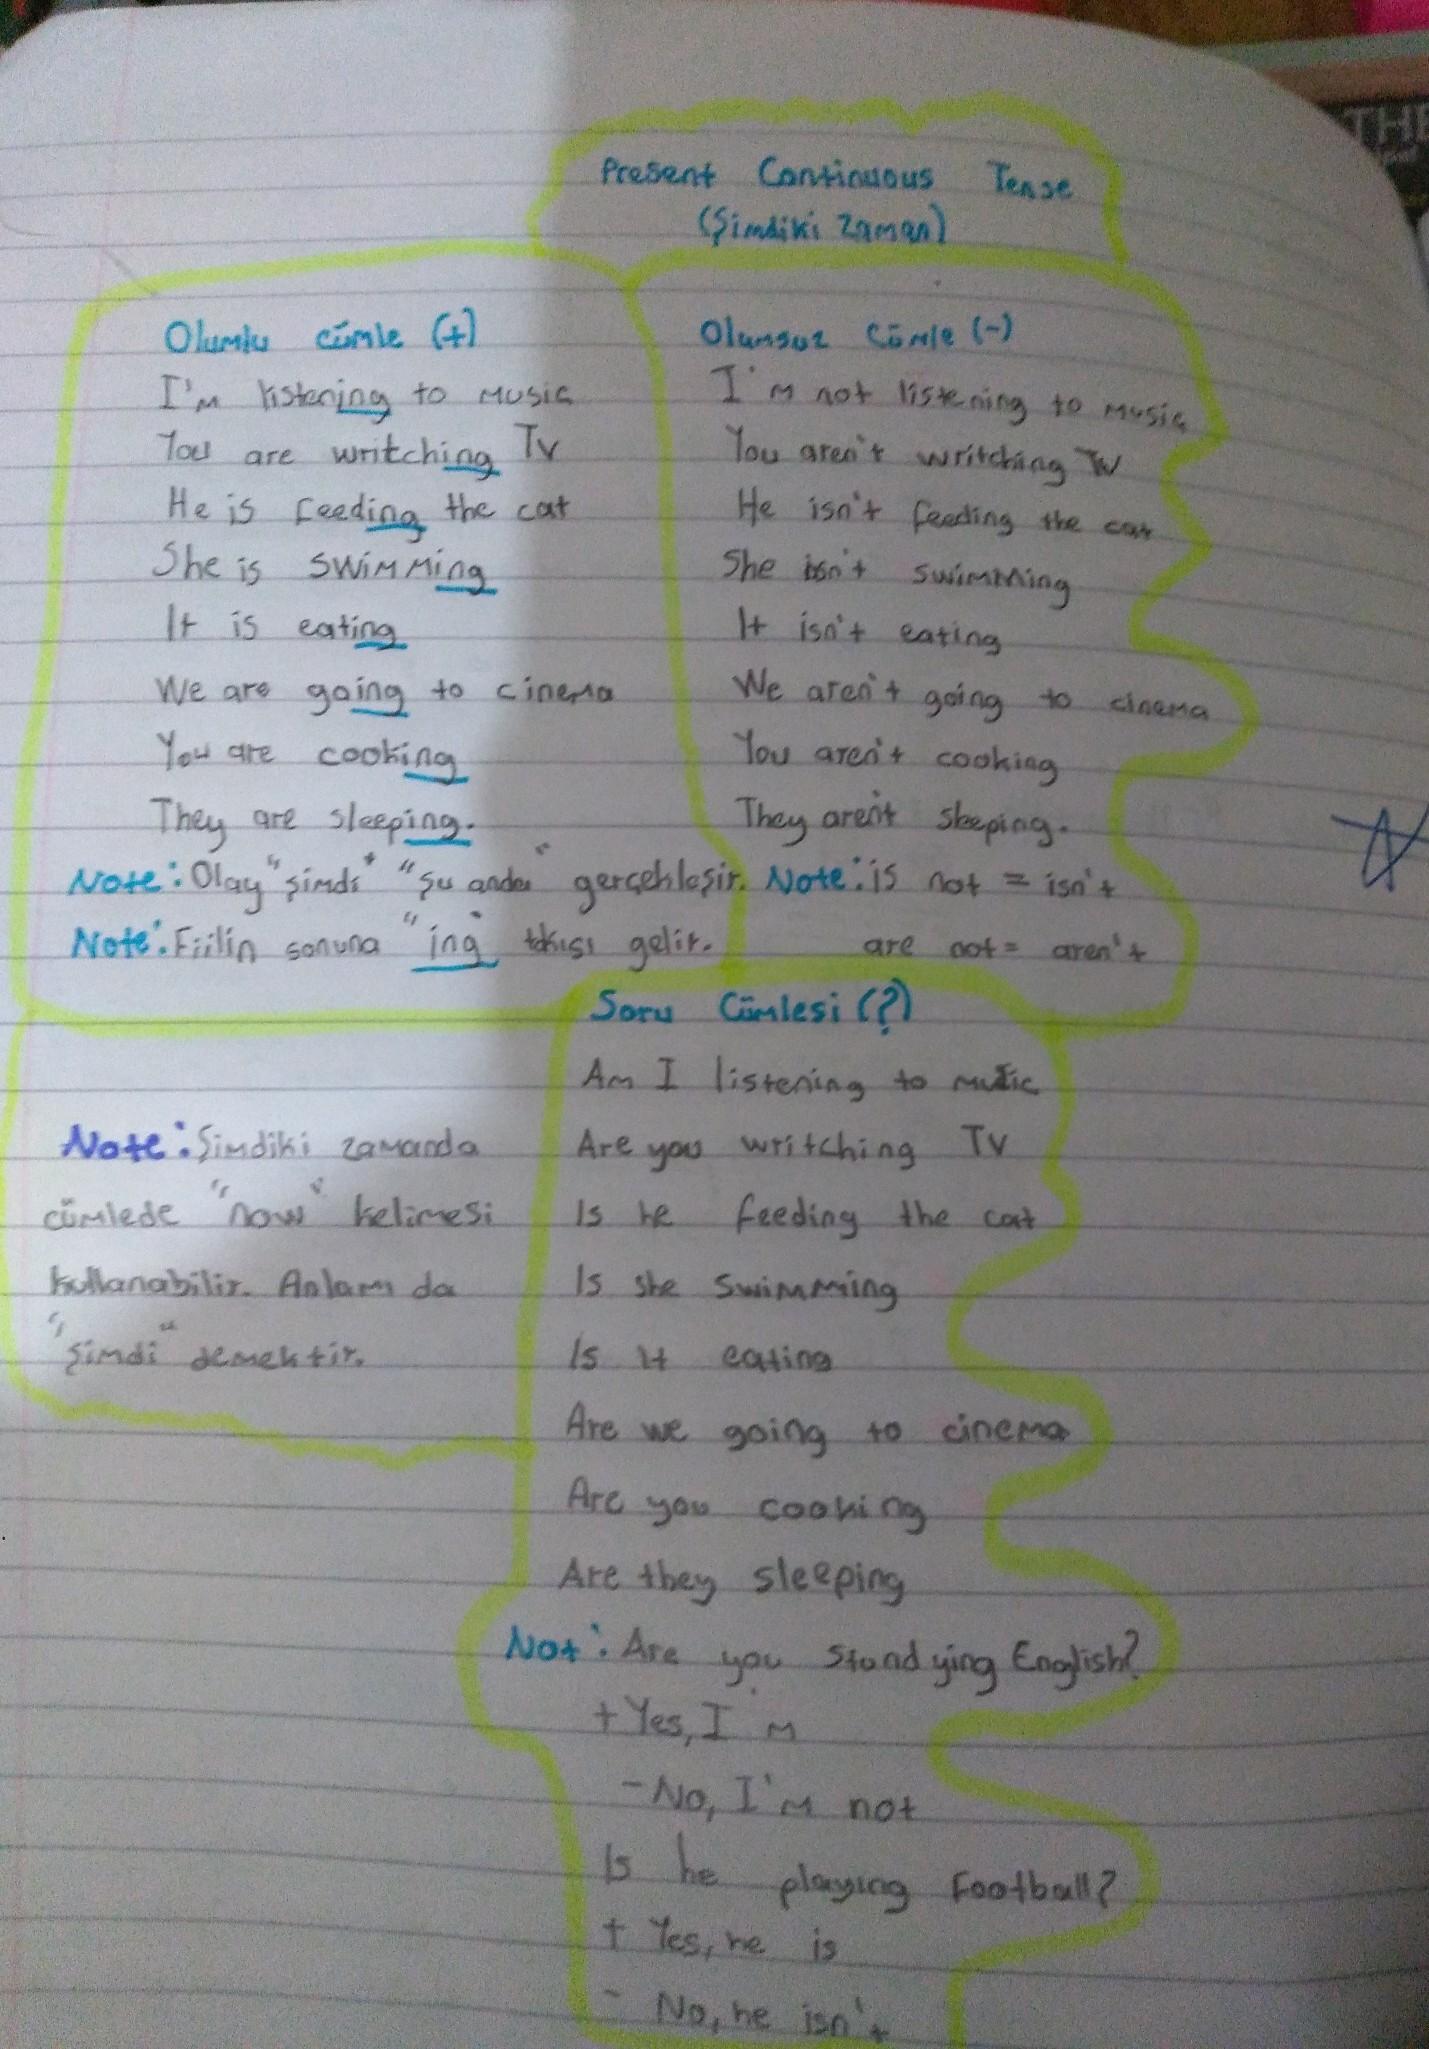 Present Continuous Tense
(Şimdiki Zaman)
Olumlu cümle (+)
I'm listening to music
You are writching Tv
He is feeding the cat
She is swimming
It is eating
We are going to cinema
You are cooking
They are sleeping.
Note: Olay "şimdi" "şu anda" gerçekleşir.
Note: Fiilin sonuna "ing" takısı gelir.
Olumsuz Cümle (-)
I'm not listening to music
You aren't writching TV
He isn't feeding the cat
She isn't swimming
It isn't eating
We aren't going to cinema
You aren't cooking
They aren't sleeping.
Note: is not = isn't
are not = aren't
Note: Şimdiki zamanda
cümlede "now" kelimesi
kullanabilir. Anlamı da
"şimdi" demektir.
Soru Cümlesi (?)
Am I listening to music
Are you writching TV
Is he feeding the cat
Is she swimming
Is it eating
Are we going to cinema
Are you cooking
Are they sleeping
Not: Are you standying English?
+ Yes, I'm
- No, I'm not
Is he playing Football?
+ Yes, he is
- No, he isn't
THE